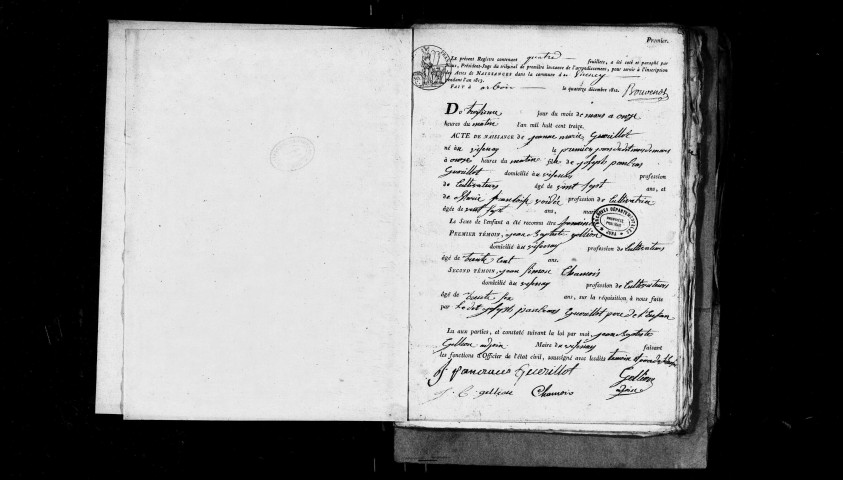 Premier.
Le présent Registre contenant quatre feuillets, a été coté et paraphé par
Nous, Président-Juge du tribunal de première instance de l'arrondissement, pour servir à l'inscription
des Actes de NAISSANCES dans la commune de
pendant l'an 1813.
FAIT à arbois le quatorze décembre 1812. Bouvenot
Du troisieme jour du mois de mars a onze
heures du matin l'an mil huit cent treize.
ACTE DE NAISSANCE de jeanne marie Guerillot
né le premier jour du dit mois de mars
à onze heures du matin fille de joseph pancras
Guerillot domicilié profession
de Cultivateurs âgé de vingt sept ans, et
de Marie francoise profession de Cultivatrice
âgée de vingt sept ans, mar
Le Sexe de l'enfant a été reconnu être feminin
PREMIER TÉMOIN, jean Baptiste gellion
domicilié profession de Cultivateurs
âgé de trente ans.
SECOND TÉMOIN, jean simon Chamois
domicilié profession de Cultivateurs
âgé de trente six ans, sur la réquisition à nous faite
par Le dit joseph pancras Guerillot pere de l'Enfan
Lu aux parties, et constaté suivant la loi par moi, jean Baptiste
Gellion adjoin Maire de faisant
les fonctions d'Officier de l'état civil, soussigné avec lesdits temoins
J. pancrace Guerillot Gellion
J. B. gellion Chamois adjoin
ARCHIVES DÉPARTEMENTALES
JURA